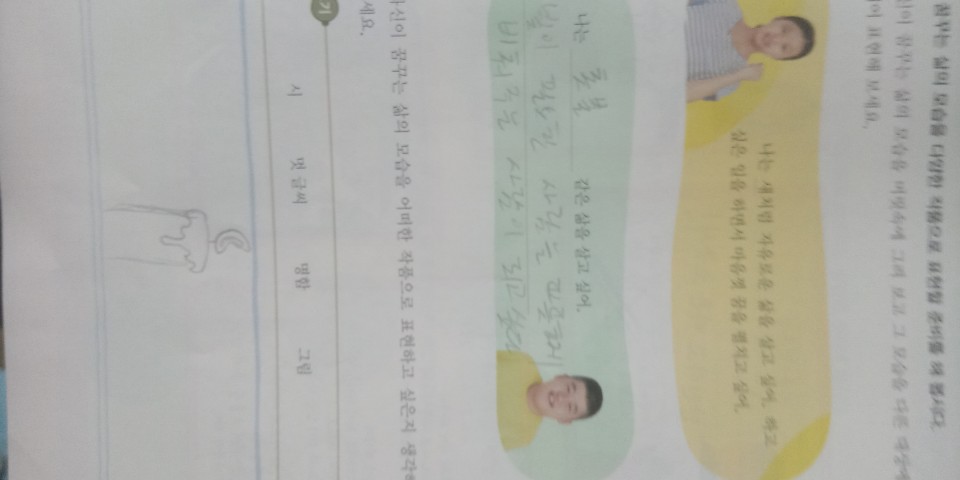 꿈꾸는 삶의 모습을 다양한 작품으로 표현할 준비를 해 봅시다.
꾸는 삶의 모습을 머릿속에 그려 보고 그 모습을 다른
표현해 보세요.
나는 새처럼 자유로운 삶을 살고 싶어. 하고
싶은 일을 하면서 마음껏 꿈을 펼치고 싶어.
나는 촛불 같은 삶을 살고 싶어.
사람을
비춰주는 사람이 되고
자신이 꿈꾸는 삶의 모습을 어떠한 작품으로 표현하고 싶은지 생각
세요.
기
시 멋 글씨 명함 그림